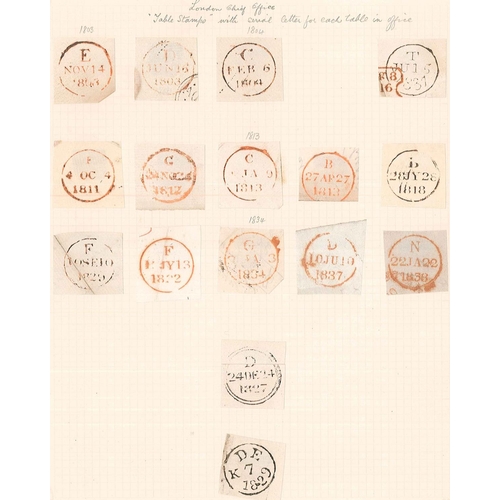 London Chief Office
"Table Stamps" with small letter for each table in office
1803
1804
E
NOV 14
D
1803
C
FEB 6
1804
T
1813
4 OC 4
1811
G
1812
C
JA 9
1813
B
27 AP 27
1813
D
28 JY 28
1818
1834
F
10 SE 10
1829
F
JY 13
1832
G
1834
D
10 JU 10
1837
N
22 JA 22
1838
D
24 DE 24
1827
D E
K 7
1829